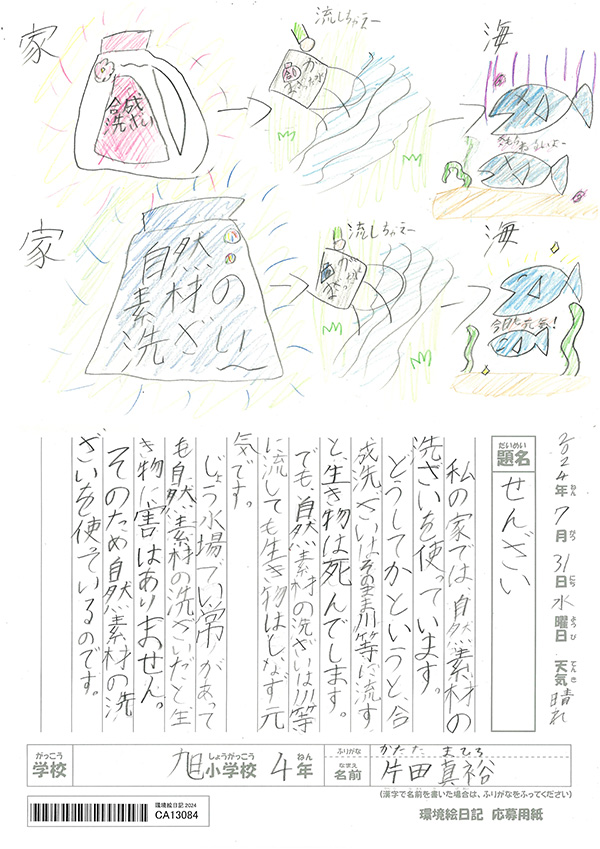 家
合成
洗ざい
流しちゃえー
海
家
自然
素材の
洗ざい
流しちゃえー
海
今日も元気!
2024年 7月 31日 水曜日 天気 晴れ
ねん がつ にち ようび てんき
だいめい
題名
せんざい
私の家では自然素材の
洗ざいを使っています。
どうしてかというと、合
成洗ざいはそのまま川等に流す
と、生き物は死んでします。
でも、自然素材の洗ざいは川等
に流しても生き物はしなず元
気です。
じょう水場でい常があって
も自然素材の洗ざいだと生
き物に害はありません。
そのため自然素材の洗
ざいを使っているのです。
がっこう
学校
旭 しょうがっこう
小学校 4年 ねん
ふりがな かただ まひろ
なまえ
名前 片田真裕
(漢字で名前を書いた場合は、ふりがなをふってください)
環境絵日記 2024
CA13084
環境絵日記 応募用紙